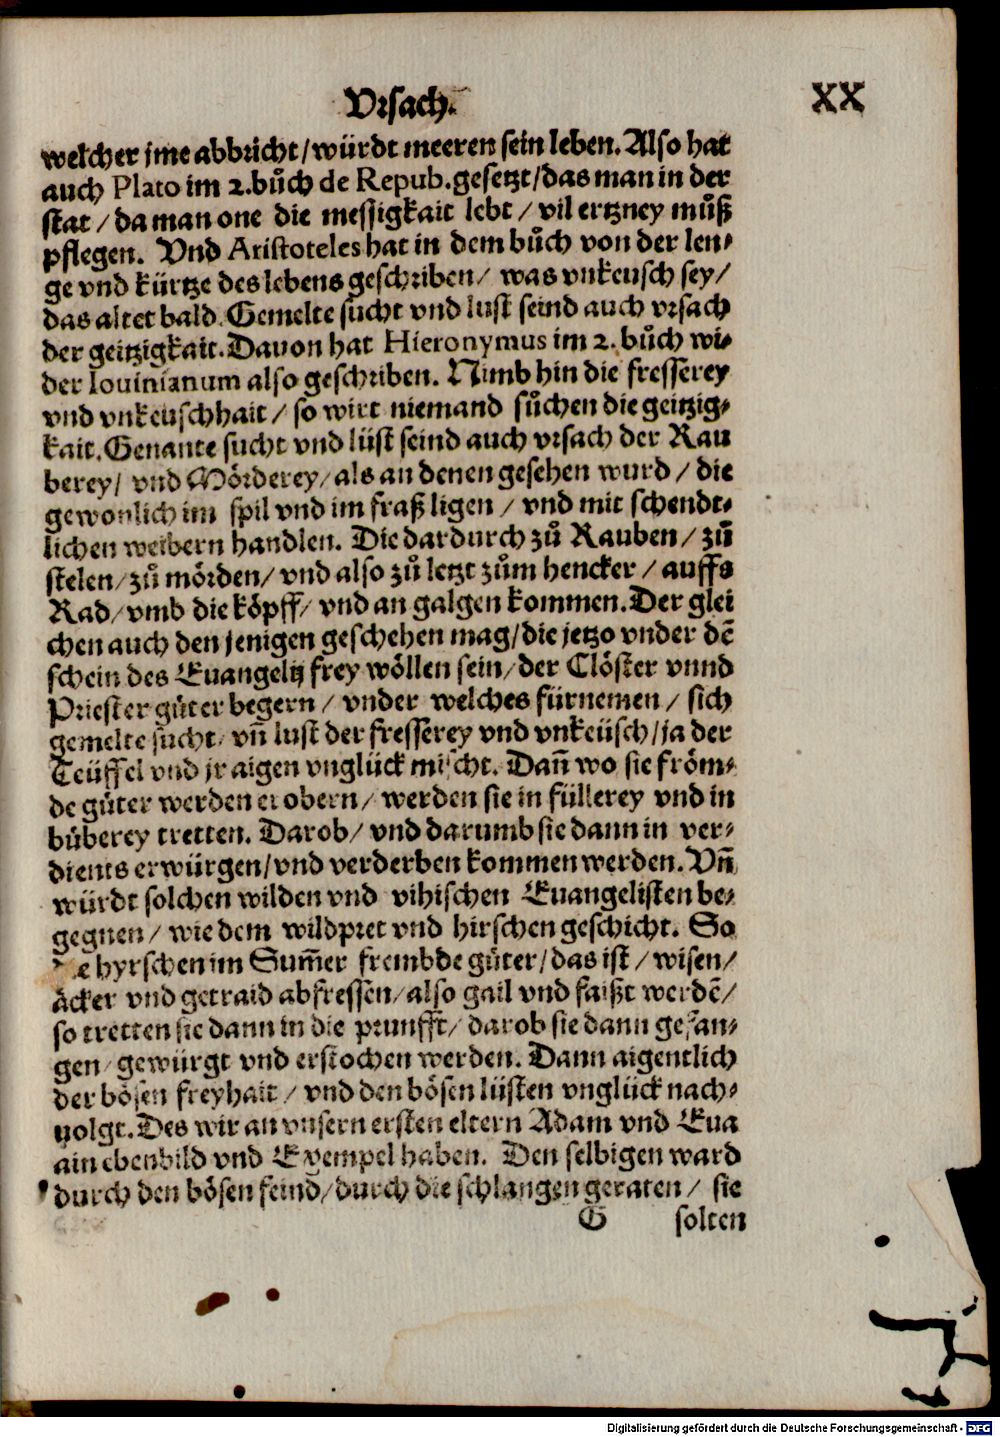 Vrsach.
XX
welcher jme abbricht/würdt meeren sein leben. Also hat
auch Plato im 2. bůch de Repub. gesetzt/das man in der
stat/da man one die messigkait lebt/vil ertzney můß
pflegen. Vnd Aristoteles hat in dem bůch von der len-
ge vnd kürtze des lebens geschriben/was vnkeusch sey/
das altet bald. Gemelte sucht vnd lust seind auch vrsach
der geitzigkait. Dauon hat Hieronymus im 2. bůch wi-
der Iouinianum also geschriben. Nimb hin die fresserey
vnd vnkeuschhait/so wirt niemand sůchen die geitzig-
kait. Genante sucht vnd lüst seind auch vrsach der Rau
berey/vnd Mörderey/als an denen gesehen wurd/die
gewonlich im spil vnd im fraß ligen/vnd mit schendt-
lichen weibern handlen. Die dardurch zů Rauben/zů
stelen/zů mörden/vnd also zů letzt zům hencker/auffs
Rad/vmb die köpff/vnd an galgen kommen. Der glei
chen auch den jenigen geschehen mag/die jetzo vnder dē
schein des Euangelij frey wöllen sein/der Clöster vnnd
Priester güter begern/vnder welches fürnemen/sich
gemelte sucht/vñ lust der fresserey vnd vnkeüsch/ja der
Teüffel vnd jr aigen vnglück mischt. Dañ wo sie fröm-
de güter werden erobern/werden sie in füllerey vnd in
büberey tretten. Darob/vnd darumb sie dann in ver-
dients erwürgen/vnd verderben kommen werden. Vñ
würdt solchen wilden vnd vihischen Euangelisten be-
gegnen/wie dem wildpret vnd hirschen geschicht. So
hyrschen im Sum̄er frembde güter/das ist/wisen/
äcker vnd getraid abfressen/also gail vnd faißt werdē/
so tretten sie dann in die prunfft/darob sie dann gefan-
gen/gewürgt vnd erstochen werden. Dann aigentlich
der bösen freyhait/vnd den bösen lüsten vnglück nach-
uolgt. Des wir an vnsern ersten eltern Adam vnd Eua
ain ebenbild vnd Exempel haben. Den selbigen ward
durch den bösen feind/durch die schlangen geraten/sie
G solten
Digitalisierung gefördert durch die Deutsche Forschungsgemeinschaft - DFG